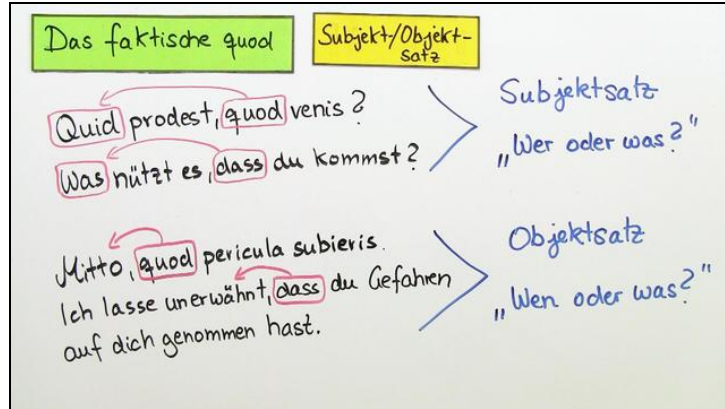 Das faktische quod
Subjekt/Objekt-
satz
Quid prodest, quod venis?
Was nützt es, dass du kommst?
Subjektsatz
„Wer oder was?"
Mitto, quod pericula subieris.
Ich lasse unerwähnt, dass du Gefahren
auf dich genommen hast.
Objektsatz
„Wen oder was?"